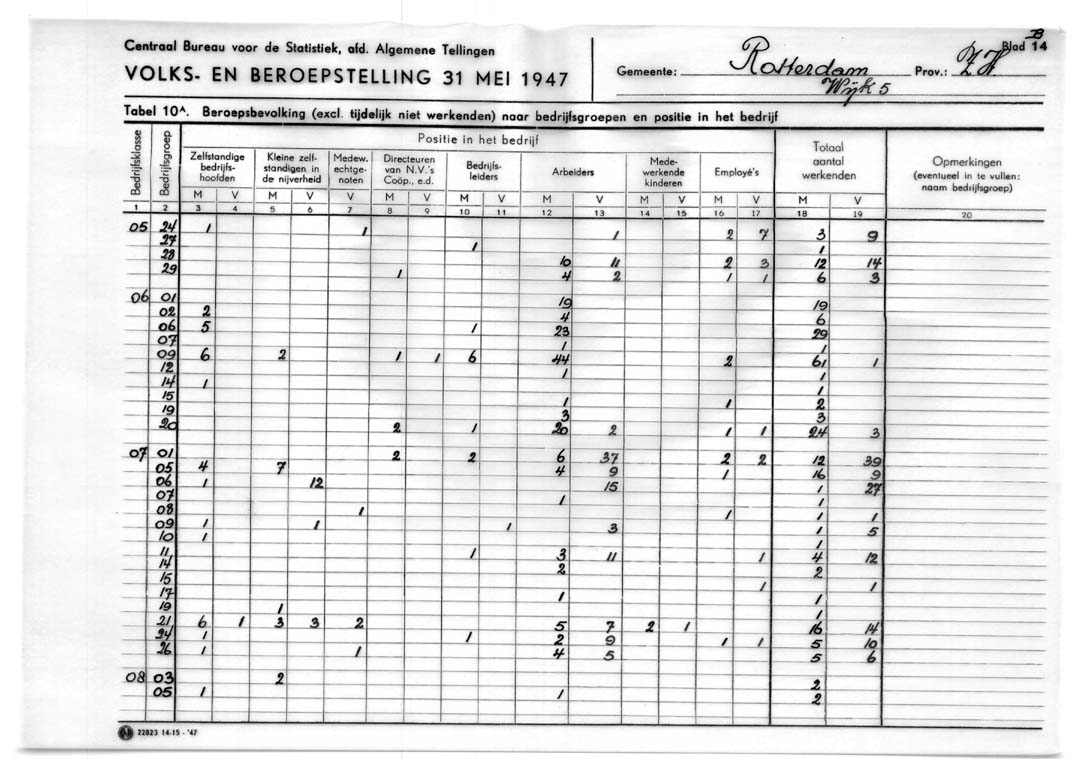 B
Centraal Bureau voor de Statistiek, afd. Algemene Tellingen
VOLKS- EN BEROEPSTELLING 31 MEI 1947
Gemeente: Rotterdam
Wijk 5
Prov.: Z.H.
Blad 14
Tabel 10A. Beroepsbevolking (excl. tijdelijk niet werkenden) naar bedrijfsgroepen en positie in het bedrijf
Bedrijfsklasse
Bedrijfsgroep
Positie in het bedrijf
Zelfstandige bedrijfs-hoofden
Kleine zelf-standigen in de nijverheid
Medew. echtge-noten
Directeuren van N.V.'s Coöp., e.d.
Bedrijfs-leiders
Arbeiders
Mede-werkende kinderen
Employé's
Totaal aantal werkenden
Opmerkingen (eventueel in te vullen: naam bedrijfsgroep)
M V M V V M V M V M V M V M V M V
1 2 3 4 5 6 7 8 9 10 11 12 13 14 15 16 17 18 19 20
05 24 1 1 1 2 7 3 9
27 1 1
28 10 11 2 3 12 14
29 1 4 2 1 1 6 3
06 01 19 19
02 2 4 6
06 5 1 23 29
07 1 1
09 6 2 1 1 6 44 2 61 1
12 1 1
14 1 1
15 1 1 2
19 3 3
20 2 1 20 2 1 1 24 3
07 01 2 2 6 37 2 2 12 39
05 4 7 4 9 1 16 9
06 1 12 15 1 27
07 1 1
08 1 1 1 1
09 1 1 1 3 1 5
10 1 1
11 1 3 11 1 4 12
14 2 2
15 1 1
17 1 1
19 1 1
21 6 1 3 3 2 5 7 2 1 16 14
24 1 1 2 9 1 1 5 10
26 1 1 4 5 5 6
08 03 2 2
05 1 1 2
22823 14-15 - '47